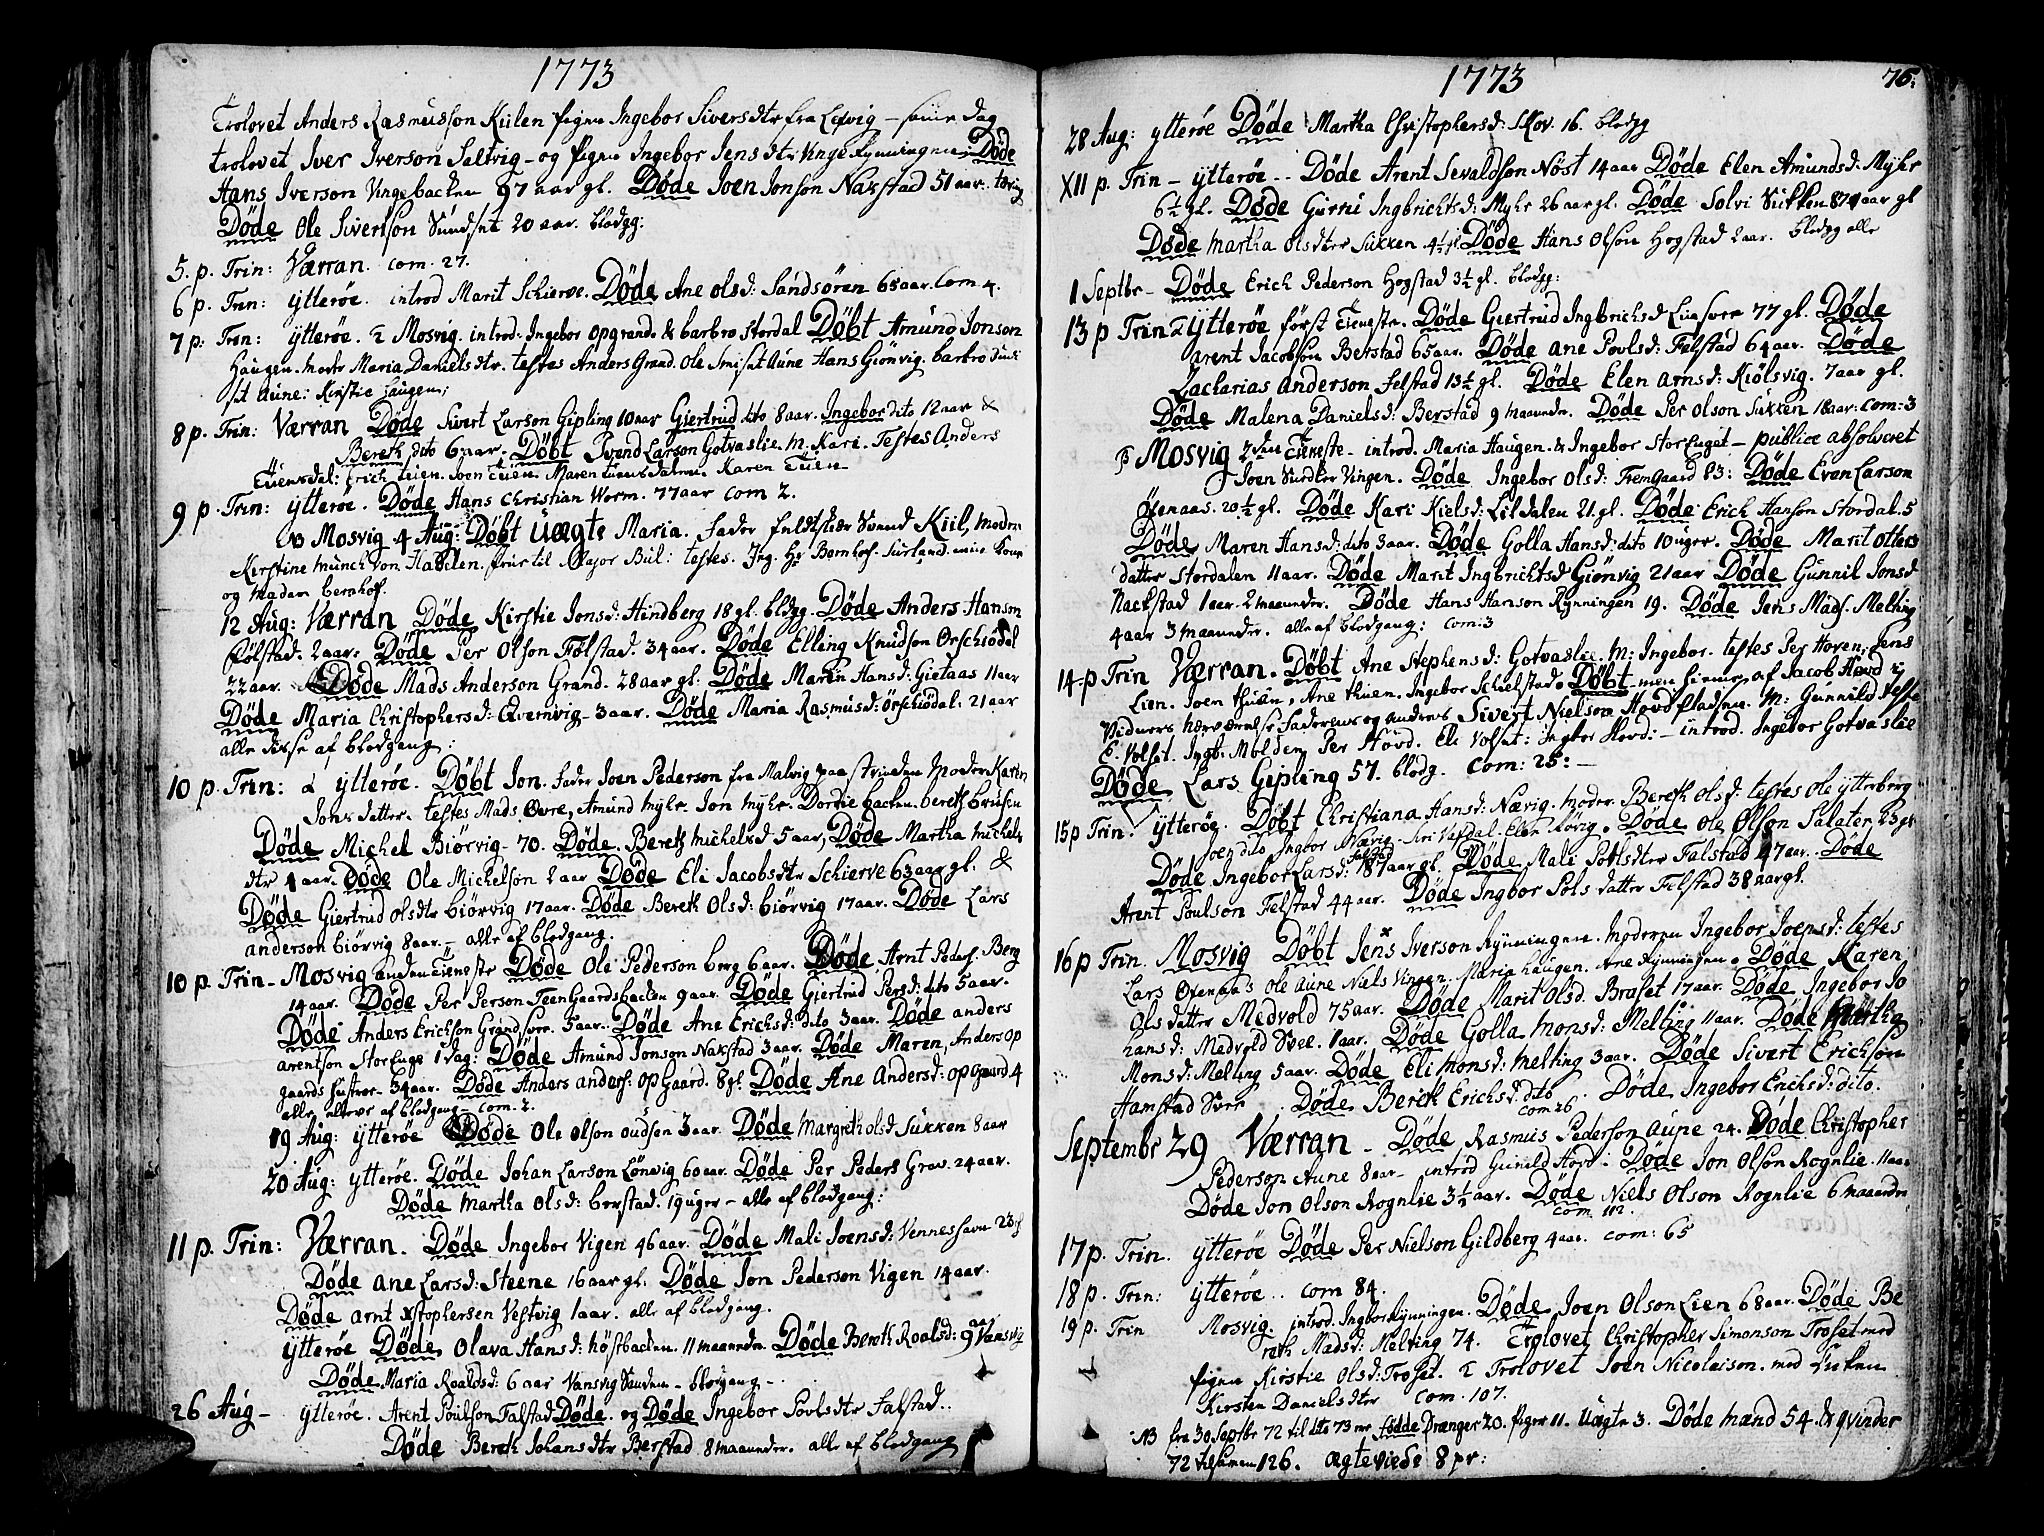 1773
Trolovet Anders Rasmusson Kiilen pigen Ingebor Siversdtr fra Lexvig – samme dag
trolovet Iver Iverson Saltvig – og Pigen Ingebor Jensdtr Vinge Kynningen Døde
Hans Iverson Vingebacken 97 aar gl. Døde Joen Jonson Nakstad 51 aar. tæring
Døde Ole Sivertson Sundset 20 aar. blodgg:
5. p. Trin: Værran. com. 27.
6 p. Trin: ytterøe. introd Marit Schierve. Døde Ane olsd: Sandsören 65 aar. Com 4.
7 p: Trin: ytterøe. & Mosvig. introd: Ingebor opgrande & barbro stordal Døbt Amund Jonson
Haugen. moder Maria Danielsdtr. testes Anders Grand. Ole Aune Hans Giönvig. barbro
Aune: Kirstie haugen;
8 p. Trin: Værran Døde Sivert Larson Gipling 10 aar Giertrud dito 8 aar. Ingebor dito 12 aar &
Bereth dito 6 aar. Døbt Svend Larson Gotvaslie. M. Kari. Testes Anders
Tuensdal: Erich Tuen. Joen Tuen. Maren Karen Tuen
9 p. Trin: ytterøe. Døde Hans Christian Worm. 77 aar com 2.
Mosvig 4 Aug: Døbt Uægte Maria. fader feldtskiær Svend Kiil, moder
Kirstine Munch von Hadelen. til Major Bul: testes. Hr Bernhof. min kone
og Madam bernhof.
12 Aug: Værran Døde Kirstie Jonsd: Hindberg 18 gl. bldgg. Døde Anders Hanson
Fölstad. 2 aar. Döde Per Olson Fölstad. 34 aar. Döde Elling Knudson Orschiödal
22 aar. Döde Mads Anderson Grand. 28 aar gl. Döde Maren Hansd: Gietaas 11 aar
Döde Maria Christophersd: Qvernvig – 3 aar. Döde Maria Rasmusd: Orschiödal. 21 aar
alle disse af blodgang:
10 p. Trin: ytterøe. Døbt Jon. fader Joen Pederson fra Malvig paa strinden moder Karen
Jonsdatter. testes Mads Övre, Amund Myhr. Jon Myhr. Dordie backen. bereth brusen
Døde Michel Biörvig – 70. Døde. Bereth Michelsd: 5 aar, Døde Martha Michels
dtr 1 aar. Døde Ole Michelson 2 aar Døde Eli Jacobsdtr Schierve 63 aar gl. &
Döde Giertrud olsdtr biörvig 17 aar. Döde Bereth Olsd: biörvig 17 aar. Døde Lars
anderson biörvig 8 aar. – alle af blodgang.
10 p. Trin – Mosvig anden Tieneste Døde Ole Pederson berg 6 aar. Døde Arnt Peders. Berg
14 aar. Døde Per Person TeenGaardsbacken 9 aar Døde Giertrud Persd: dito 5 aar.
Døde Anders Erichson Grandsvee. 5 aar. Döde Ane Erichsd: dito 3 aar. Döde anders
arentson StorEuge 1 dag: Döde Amund Jonson Nakstad 3 aar. Döde Maren, Anders op
gaards hustroe – 34 aar. Döde Anders anders: opGaard. 8 gl. Döde Ane Andersd: opgaard. 4
alle af blodgang – com. 2.
19 Aug: ytterøe Döde Ole Olson oudsen 3 aar. Döde Margreth olsd Sukken 8 aar
20 Aug: ytterøe. Döde Johan Larson Lönvig 60 aar. Döde Per Peders Grav. 24 aar.
Döde Martha Olsd: berstad. 19 uger – alle af blodgang:
11 p. Trin: Værran. Döde Ingebor Vigen 46 aar. Döde Mali Joensd: Venneshavn 23
Döde Ane Larsd: Steene 16 aar gl. Döde Jon Pederson Vigen 14 aar.
Döde arnt Xstophersen Vestvig 1 aar. alle af blodgang.
ytterøe Döde. Olava Hansd: höstbacken. 11 maaneder. Döde Bereth Roalsd: 9 aar Vansvig
Döde. Maria Roaldsd: 6 aar Vansvig – blodgang –
26 Aug – ytterøe. Arent Poulson Falstad Döde. og Döde Ingebor Povlsdtr Falstad..
Döde Bereth Johansdtr Berstad 8 maaneder. alle af blodgang
1773
76.
28 Aug: ytteröe Döde Martha Christophersd: Skov. 16. blodgg
XII p. Trin – ytteröe – Döde Arent Sevaldson Nöst 14 aar Döde Elen Amundsd: Myhr
6½ gl. Döde Gurri Ingbrichtsd: Myhr 26 aar gl. Döde Solvi Sukken 87 aar gl
Döde Martha Olsdtr Sukken 4½ gl. Döde Hans Olson Hogstad 2 aar. blodgg alle
1 Septbr – Döde Erich Pederson Hogstad 3½ gl. blodgg:
13 p Trin – ytterøe först Tieneste. Döde Giertrud Ingbrichsd Lunsvee 77 gl. Döde
Arent Jacobson Berstad 65 aar. Döde Ane Povlsd: Felstad 64 aar. Döde
Zacharias Anderson Felstad 13½ gl. Döde Elen Arnsd: Kiölsvig. 7 aar gl.
Döde Malena Danielsd: Berstad 9 maander. Döde Per Olson Sukken 18 aar: Com: 3
Mosvig 2den Tieneste – introd. Maria Haugen. & Ingebor StorEuget – publice absolveret
Joen Vingen. Döde Ingebor Olsd: FremGaard 83: Döde Even Larson
Oxenaas. 20½ gl. Döde Kari Kielsd: Lildalen 21. gl. Döde Erich Hanson Stordal. 5
Döde Maren Hansd: dito 3 aar. Döde Golla Hansd: dito 10 uger. Döde Marit Otters
datter Stordalen 11 aar. Döde Marit Ingbrichtsd Giönvig 21 aar Döde Gunnil Jonsd
Nackstad 1 aar. 2 maaneder. Döde Hans Hanson Kynningen 19. Döde Jens Mads. Melting
4 aar 3 maaneder. alle af blodgang: com: 3
14 p Trin Værran. Döbt Ane Stephensd: Gotvaslie. M: Ingebor. testes Per Hoven, Jens
Lien. Joen thuen. Ane thuen. Ingebor Schielstad. Döbt – men af Jacob Hovd i
Vidners nærværelse faderens og andres Sivert Nielson Hovd Pladsen. M: Gunnild teste
E. Volset. Ingb. Molden Per Hovd. Eli Volset: Ingbor Hovd: – introd. Ingebor Gotvaslie
Döde Lars Gipling 57. blodg. Com: 25: –
15 p Trin. ytterøe. Döbt Christiana Hansd: Nærvig. moder. Bereth Olsd: testes Ole ytterberg
Joen dito Ingbor Nærvig. Vasdal. Elen Rörvig. Döde Ole Olson Salater 23 gl
Döde Ingebor Larsd: Falstad 18 aar gl. Döde Mali Povlsdtr Falstad 47 aar. Döde
Arent Poulson Felstad 44 aar. Döde Ingbor Polsdatter Felstad 38 aar gl.
16 p Trin. Mosvig Döbt Jens Iverson Kynningen. moderen Ingebor Joensd: testes
Lars Oxenaas Ole Aune Niels Vingen. Maria haugen. Ane Kynningen. Döde Karen
Olsdatter Medvold 75 aar. Döde Marit Olsd. Braset 17 aar. Döde Ingebor Jo
hansd: Medvold Svee. 1 aar. Döde Golla Monsd: Melting 11 aar. Döde Martha
Monsd: Melting 5 aar. Döde Eli Monsd: Melting 3 aar. Döde Sivert Erichson
Hamstad Svee. Döde Bereth Erichsd: dito. Döde Ingebor Erichsd: dito.
com 26
Septembr 29 Værran – Döde Rasmus Pederson Aune 24. Döde Christopher
Pederson Aune 8 aar – introd Gunild Hovd – Döde Jon Olson Rognlie. 11 aar
Döde Jon Olson Rognlie 3½ aar. Döde Niels Olson Rognlie 6 maaneder
com. 112.
17 p. Trin. ytterøe Döde Per Nielson Gildberg 4 aar. com: 65
18 p. Trin: ytterøe.. com 84.
19 p. Trin Mosvig. introd. Ingebor Kynningen. Döde Joen Olson Lien 68 aar. Döde Be
reth Madsd: Melting 74. Trolovet Christopher Simonson Troset med
pigen Kirstie Olsd: Troset. & Trolovet Joen Nicolaison. med Enken
Kirsten Danielsdtr Com. 107.
NB fra 30 Septbr 72 til dito 73 er födde Drænger 20. piger 11. Uægte 3. Döde mænd 54. & qvinder
72 tilsamen 126. Ægteviede 8 pr: